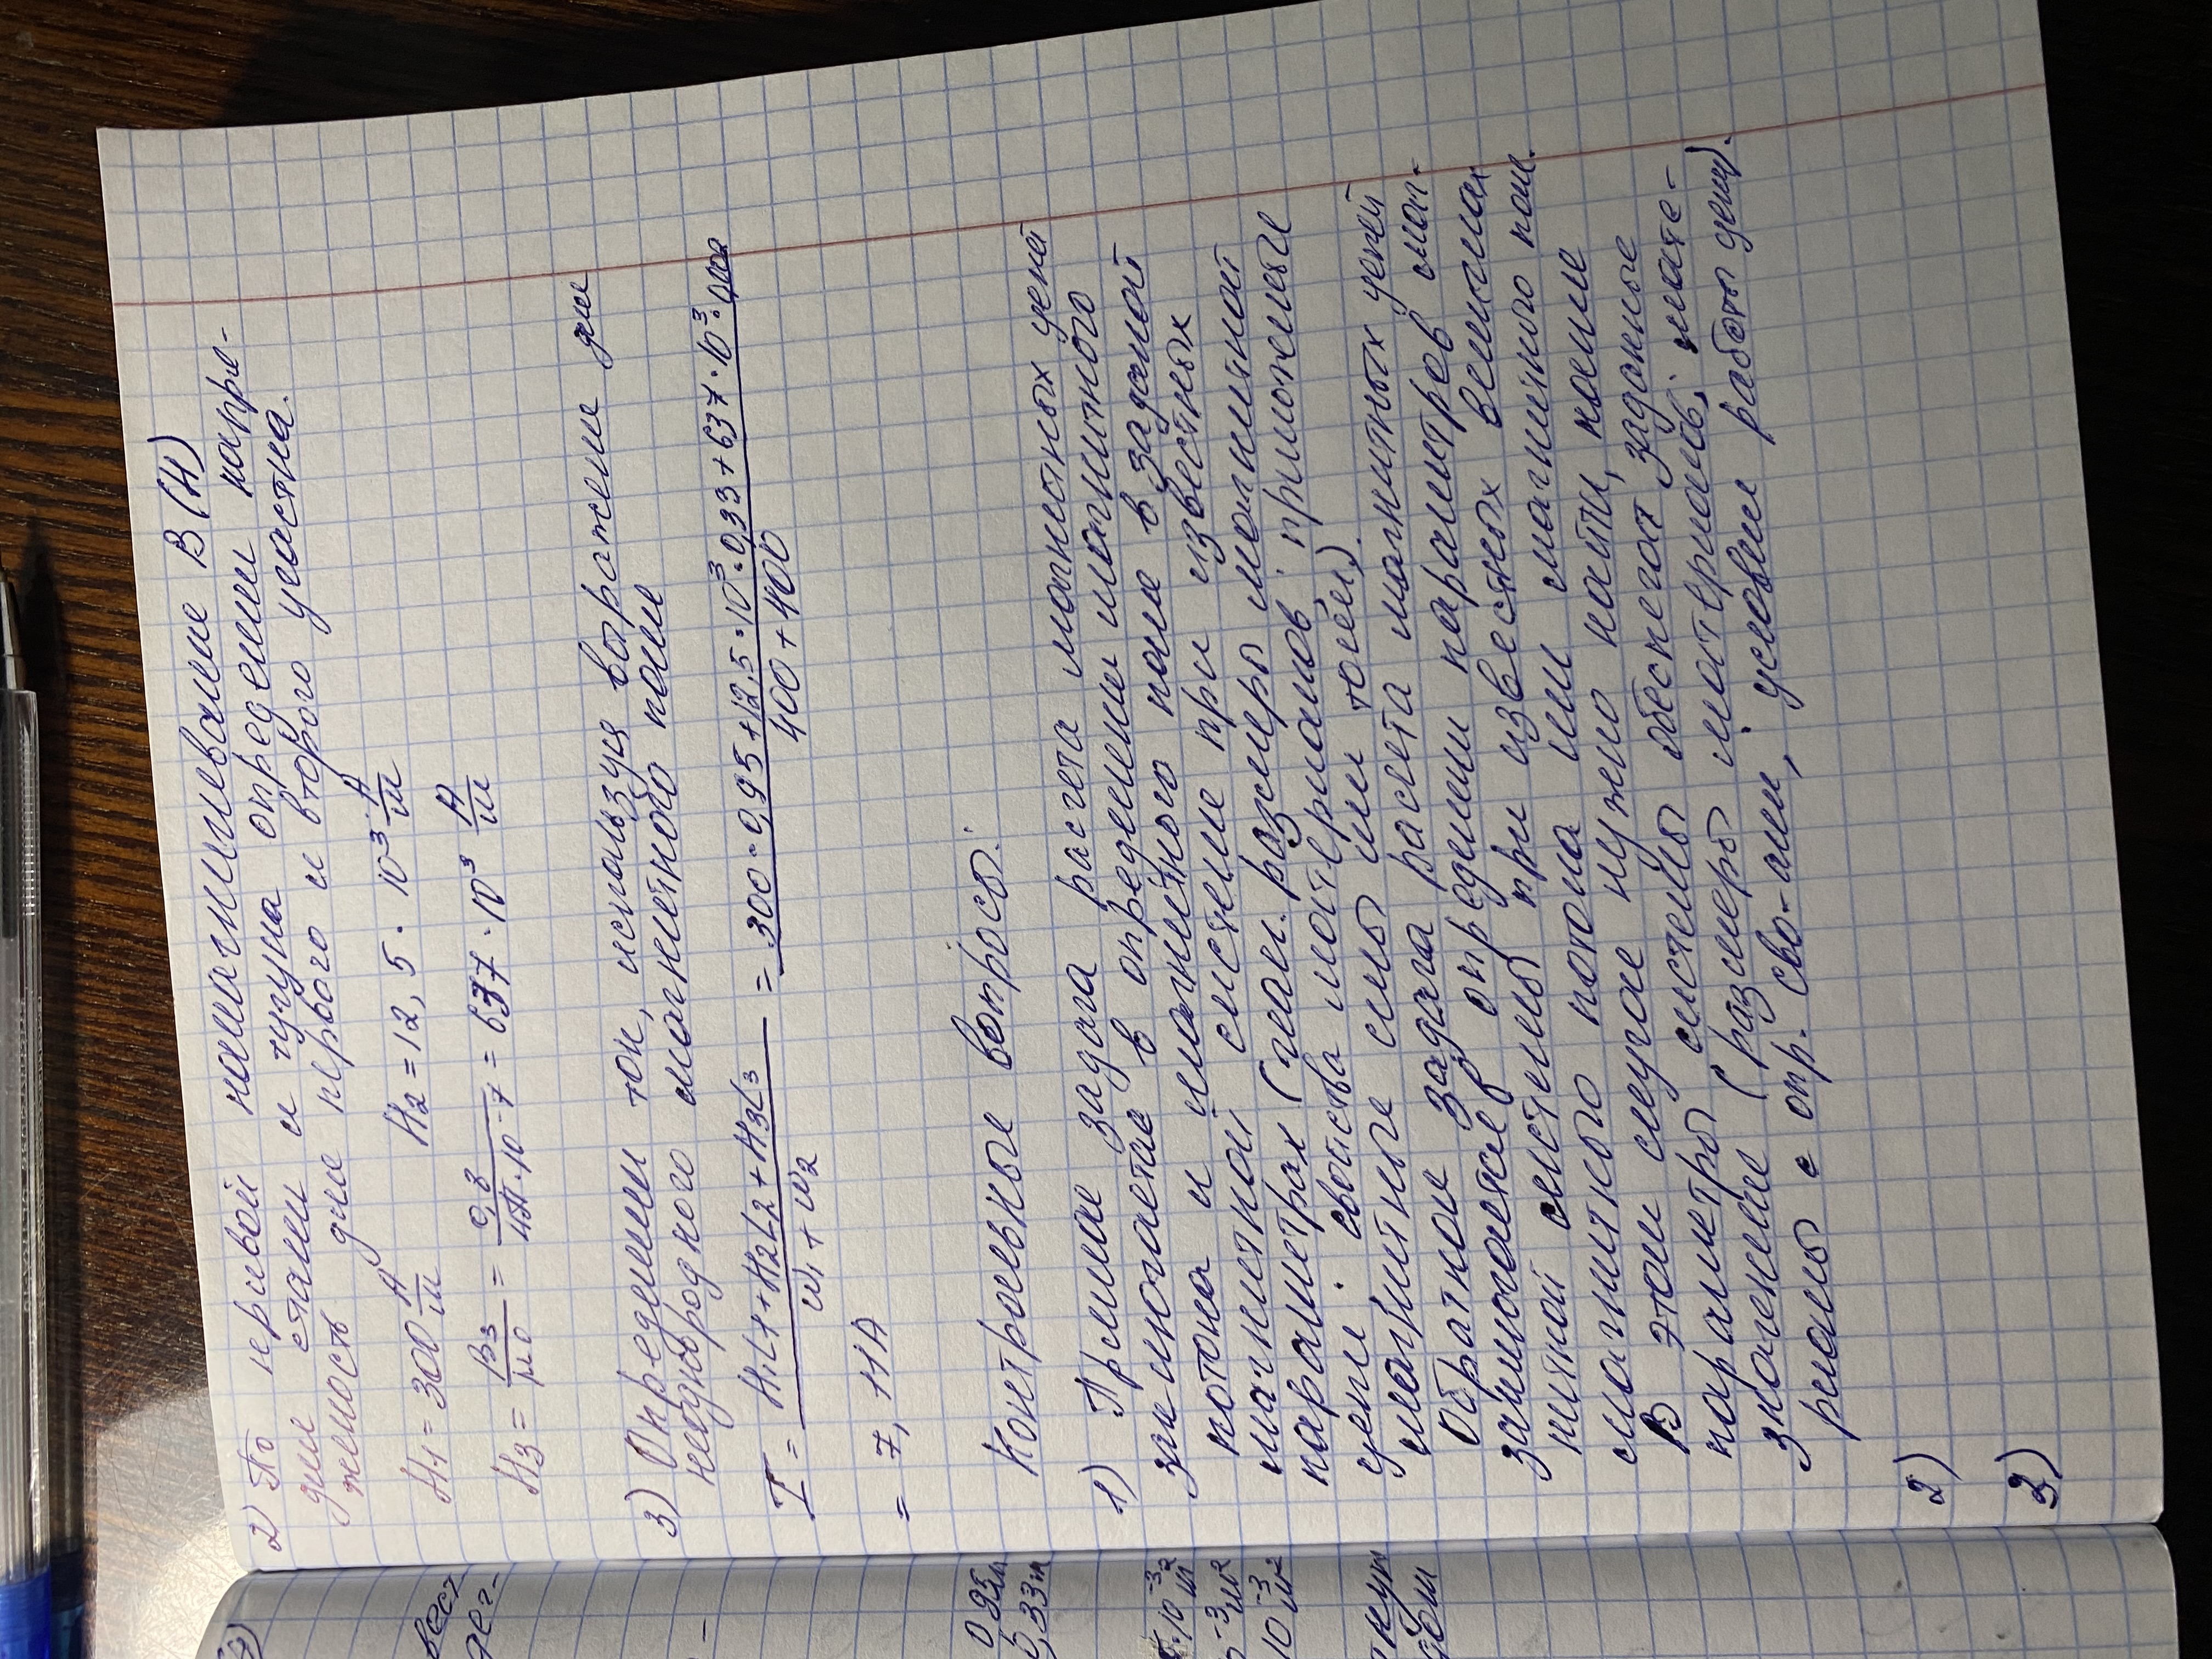 2) По кривой намагничевание В(Н)
для стали и чугуна определим напря-
женость для первого и второго участка.
H1 = 300 А/м H2 = 12,5 · 10³ А/м
H3 = B3/μ0 = 0,8/4π·10-7 = 637 · 10³ А/м
3) Определим ток, используя выражение для
неоднородного магнитного поля
I = H1L1+H2L2+H3L3 / w1+w2 = 300·0,95+12,5·10³·0,33+637·10³·0,002 / 400+400
= 7,11А
Контрольные вопросы:
1) Прямая задача расчета магнитных цепей
заключается в определении магнитного
потока и магнитного поля в заданой
магнитной системе при известных
параметрах (геом. размеры магнитной
цепи; свойства материалов; приложеные
магнитные силы или токи).
Обратная задача расчета магнитных цепей
заключается в определении параметров маг-
нитной системы при известных величинах
магнитного потока или магнитного пол.
В этом случае нужно найти, какие
параметры системы обеспечат заданные
значение (размеры материалов; мате-
риалы с опр. сво-ами; условия работы цепи).
2)
3)
вест
0,95м
0,33м
·10⁻³ м²
⁻³ м²
10⁻³ м²